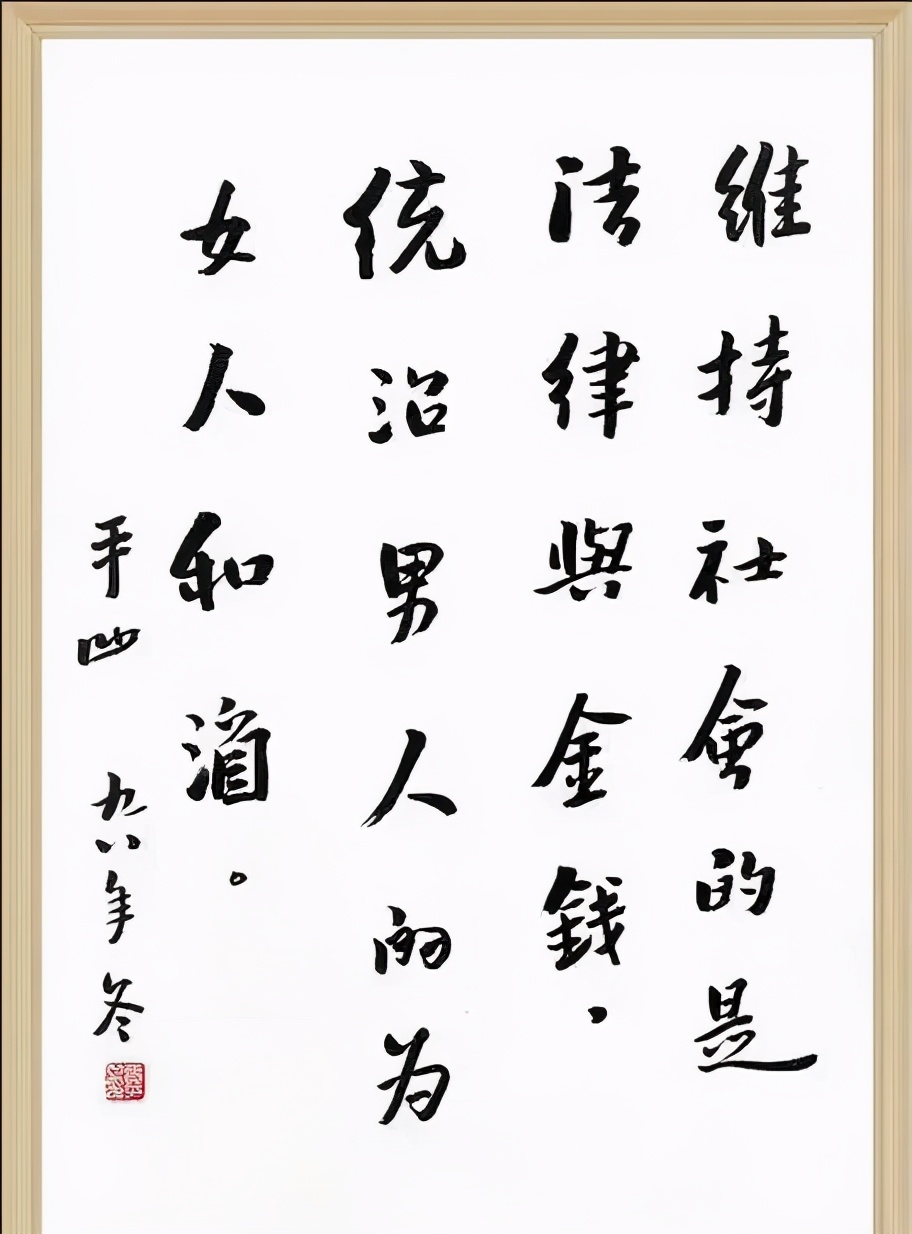 維持社會的是
法律與金錢，
統治男人的为
女人和酒。
平凹 九八年冬